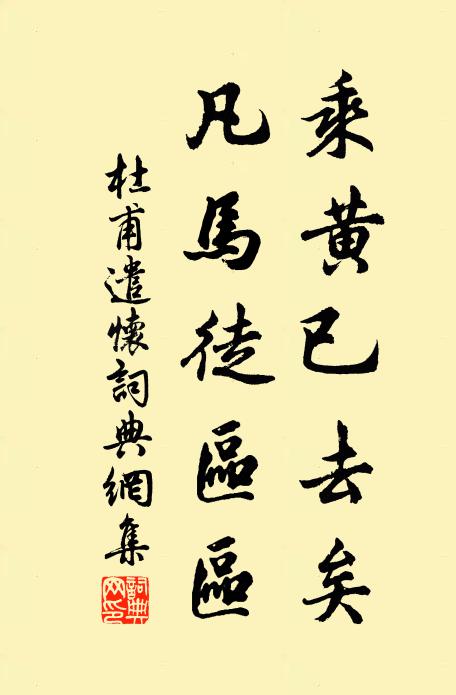 乘黄已去矣
凡馬徒區區
杜甫遣懷詞典網集
詞典
网印